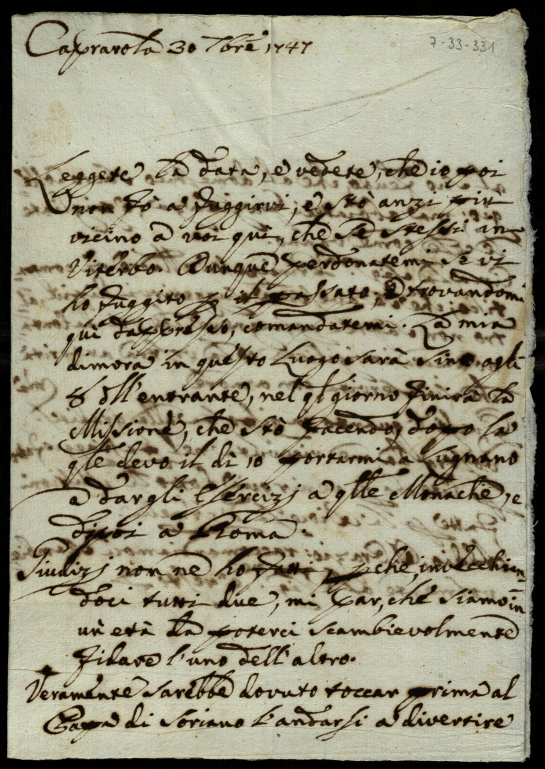 Caprarola 30 8bre 1747
7-33-331
Leggete la data, e vedete, che io poi
non fò a fuggirvi, e stò anzi più
vicino a voi quì, che se stessi in
Viterbo. Dunque perdonatemi se vi
ho fuggito p il passato, e trovandomi
quì dappresso, comandatemi. La mia
dimora in questo luogo sarà sino agli
8 dell'entrante, nel ql giorno finirà la
Missione, che stò facendo, dopo la
qle devo il dì 10 portarmi a Lugnano
a dar gli Esercizj a qlle Monache, e
dipoi a Roma.
Giudizj non ne ho fatti, pche, invecchian
doci tutti due, mi par, che siamo in
un età da poterci scambievolmente
fidare l'uno dell'altro.
Veramente sarebbe dovuto toccar prima al
Papa di Soriano l'andarsi a divertire